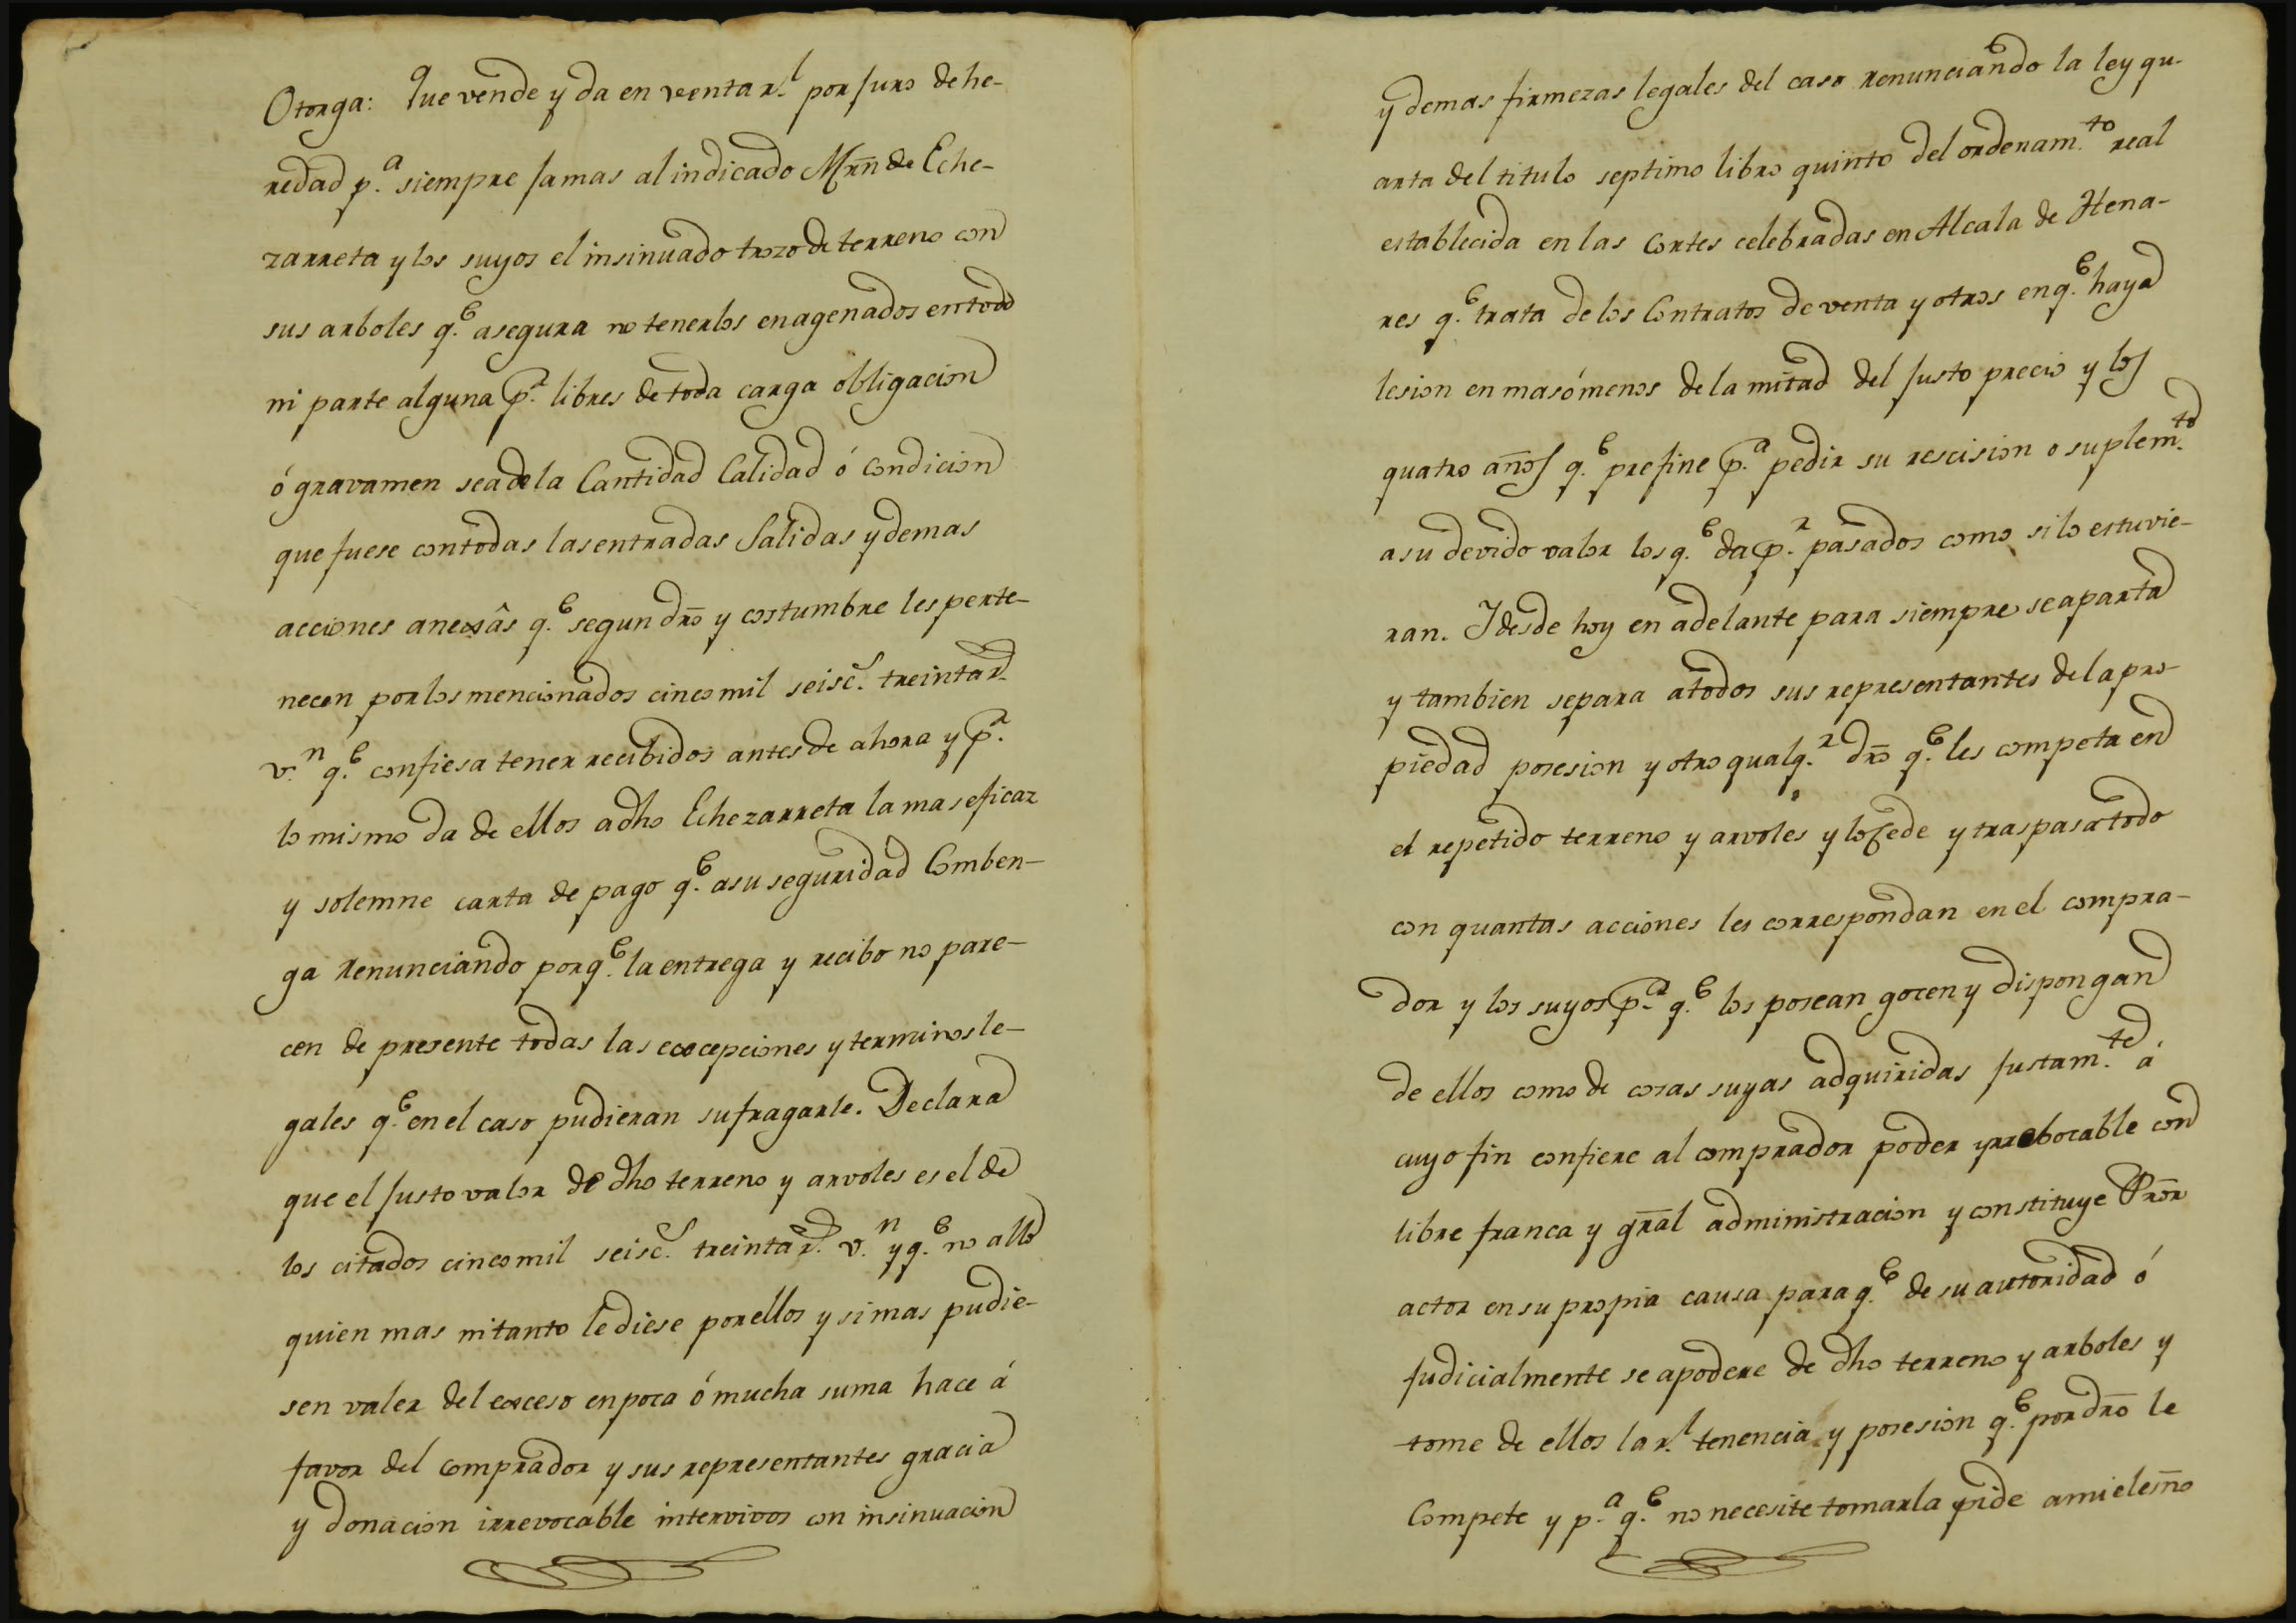 Otorga: Que vende y da en venta r.l por juro de he-
redad p.a siempre jamas al indicado Mrñ de Eche-
zarreta y los suyos el insinuado trozo de terreno con
sus arboles q.e asegura no tenerlos enagenados en todo
ni parte alguna p.r libres de toda carga obligacion
ó gravamen sea de la Cantidad Calidad ó condicion
que fuese con todas las entradas Salidas y demas
acciones anexâs q.e segun dr̃o y costumbre les perte-
necen por los mencionados cinco mil seisc.s treinta r.s
v.n q.e confiesa tener recibidos antes de ahora y p.r
lo mismo da de ellos a dho Echezarreta la mas eficaz
y solemne carta de pago q.e a su seguridad Comben-
ga Renunciando por q.e la entrega y recibo no pare-
cen de presente todas las excepciones y terminos le-
gales q.e en el caso pudieran sufragarle. Declara
que el justo valor de dho terreno y arvoles es el de
los citados cinco mil seisc.s treinta r.s v.n y q.e no alló
quien mas ni tanto le diese por ellos y si mas pudie-
sen valer del exceso en poca ó mucha suma hace á
favor del comprador y sus representantes gracia
y donacion irrevocable intervivos con insinuacion
y demas firmezas legales del caso renunciando la ley qu-
arta del titulo septimo libro quinto del ordenam.to real
establecida en las Cortes celebradas en Alcala de Hena-
res q.e trata de los Contratos de venta y otros en q.e haya
lesion en mas ó menos de la mitad del justo precio y los
quatro años q.e prefine p.a pedir su rescision o suplem.to
a su devido valor los q.e da p.r pasados como si lo estuvie-
ran. Y desde hoy en adelante para siempre se aparta
y tambien separa a todos sus representantes de la pro-
piedad posesion y otro qualq.r dr̃o q.e les competa en
el repetido terreno y arvoles y lo Cede y traspasa todo
con quantas acciones les correspondan en el compra-
dor y los suyos p.a q.e los posean gocen y dispongan
de ellos como de cosas suyas adquiridas justam.te á
cuyo fin confiere al comprador poder yrrebocable con
libre franca y gr̃al administracion y constituye Pr̃or
actor en su propia causa para q.e de su autoridad ó
judicialmente se apodere de dho terreno y arboles y
tome de ellos la r.l tenencia y posesion q.e por dr̃o le
Compete y p.a q.e no necesite tomarla pide a mi el esr̃no